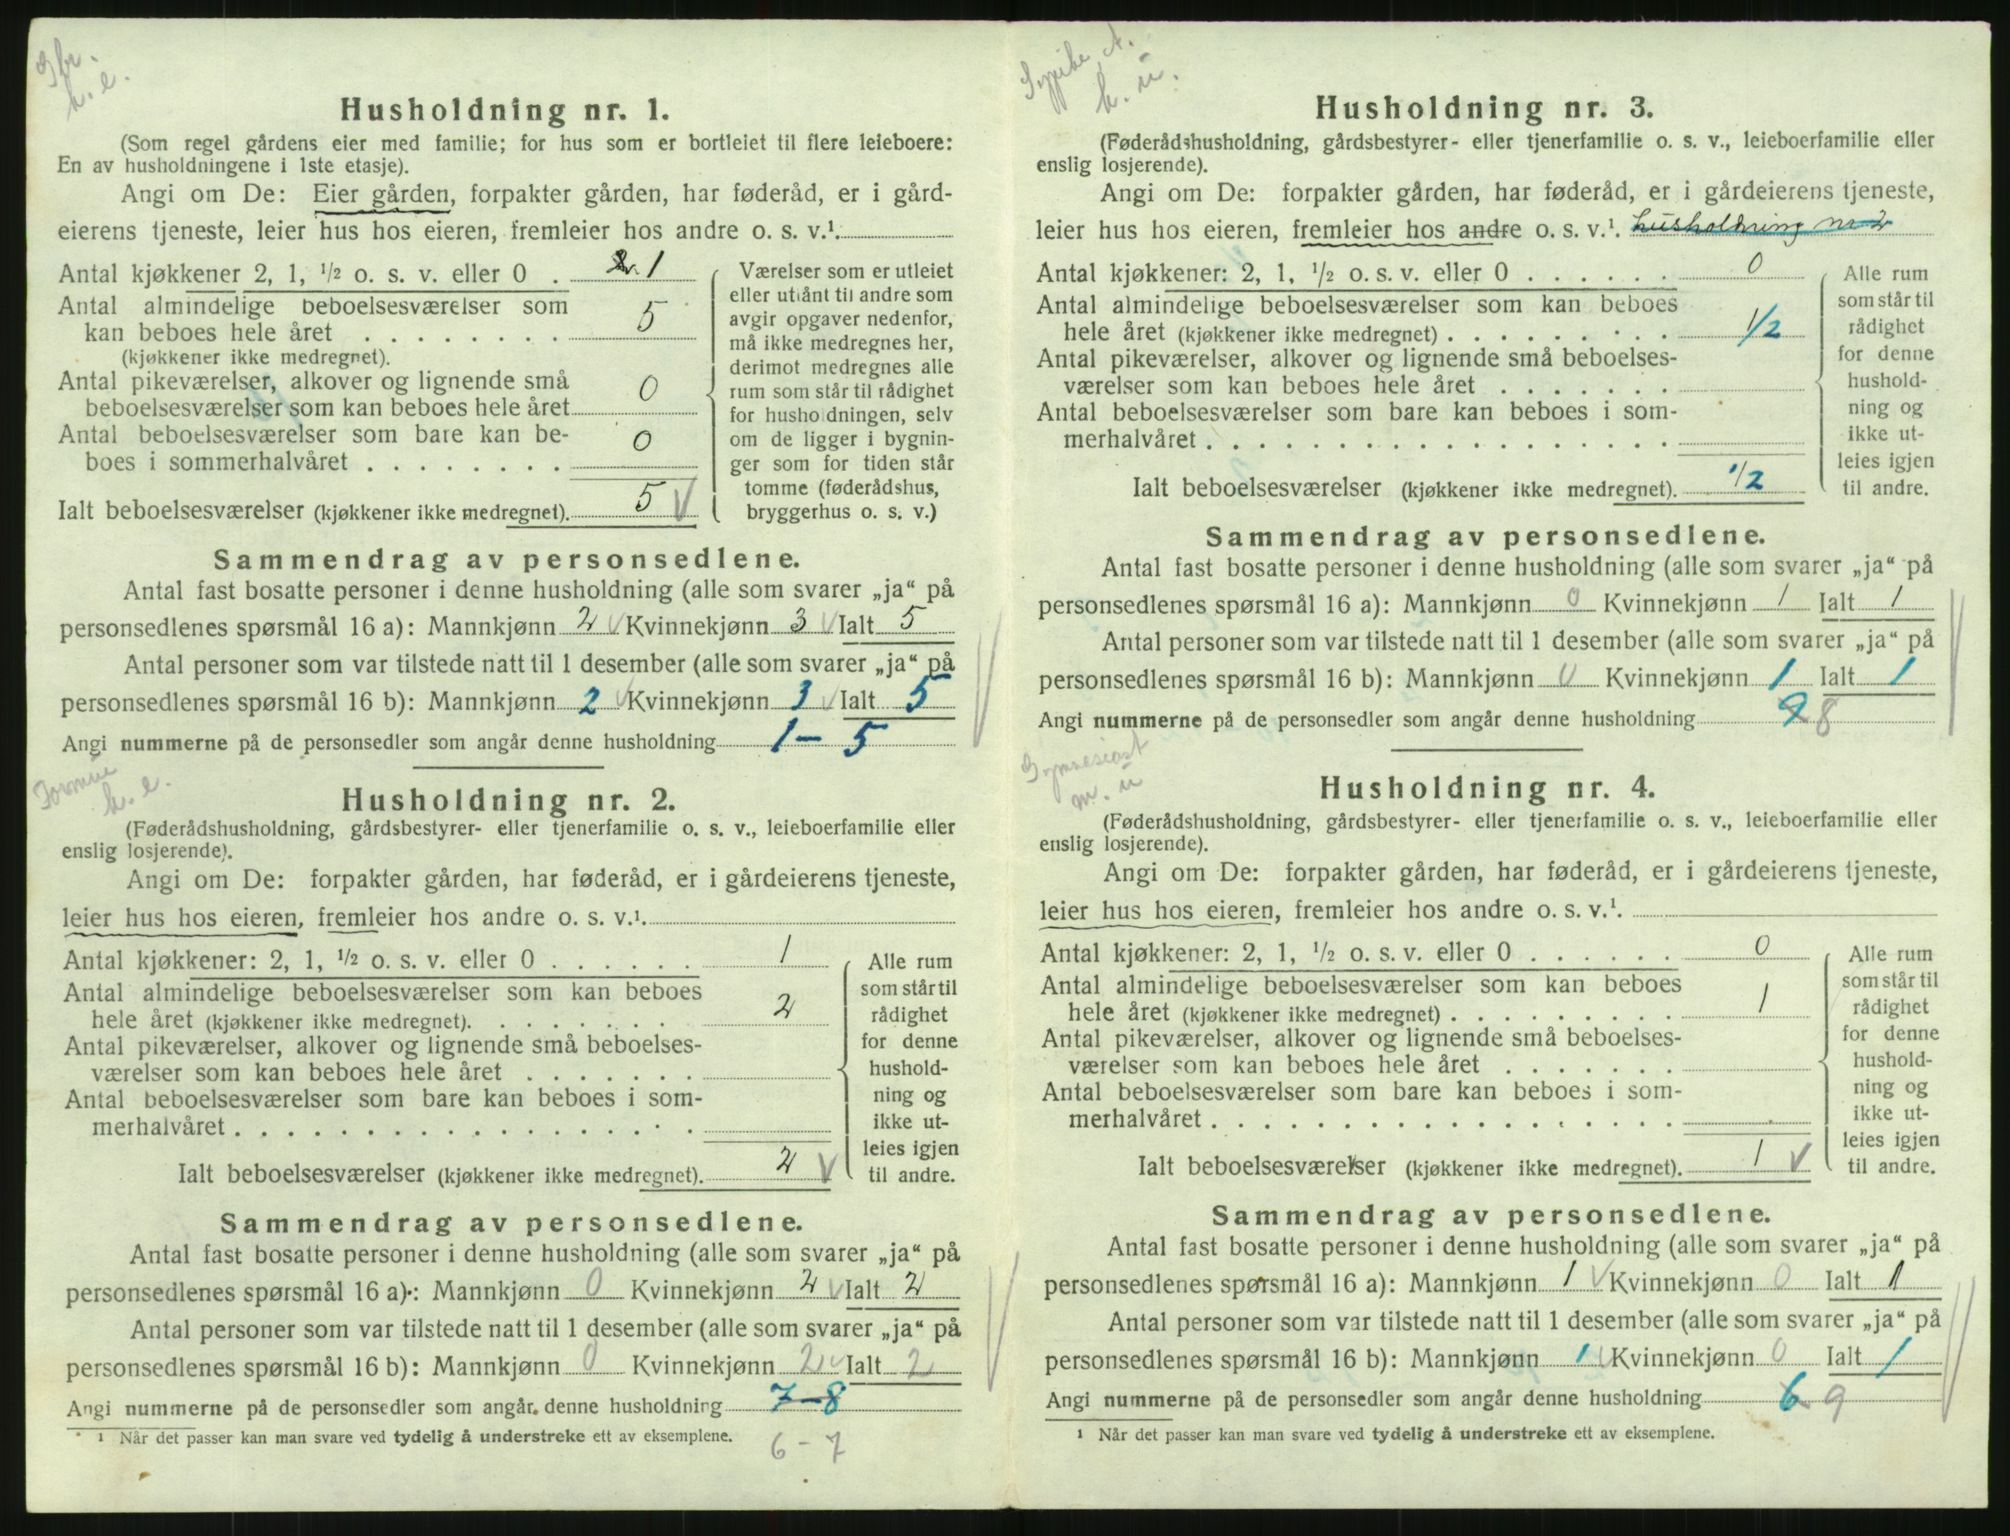 Gbr.
h. e.
Husholdning nr. 1.
(Som regel gårdens eier med familie; for hus som er bortleiet til flere leieboere:
En av husholdningene i 1ste etasje).
Angi om De: Eier gården, forpakter gården, har føderåd, er i gård-
eierens tjeneste, leier hus hos eieren, fremleier hos andre o. s. v.¹.
Antal kjøkkener 2, 1, ½ o. s. v. eller 0 . 1
Antal almindelige beboelsesværelser som
kan beboes hele året . . . . . . . . 5
(kjøkkener ikke medregnet).
Antal pikeværelser, alkover og lignende små
beboelsesværelser som kan beboes hele året 0
Antal beboelsesværelser som bare kan be-
boes i sommerhalvåret . . . . . . . . 0
Ialt beboelsesværelser (kjøkkener ikke medregnet). 5 V
Værelser som er utleiet
eller utlånt til andre som
avgir opgaver nedenfor,
må ikke medregnes her,
derimot medregnes alle
rum som står til rådighet
for husholdningen, selv
om de ligger i bygnin-
ger som for tiden står
tomme (føderådshus,
bryggerhus o. s. v.)
Sammendrag av personsedlene.
Antal fast bosatte personer i denne husholdning (alle som svarer „ja“ på
personsedlenes spørsmål 16 a): Mannkjønn 2 V Kvinnekjønn 3 V Ialt 5
Antal personer som var tilstede natt til 1 desember (alle som svarer „ja“ på
personsedlenes spørsmål 16 b): Mannkjønn 2 V Kvinnekjønn 3 V Ialt 5
Angi nummerne på de personsedler som angår denne husholdning 1 – 5
Formue
h. e.
Husholdning nr. 2.
(Føderådshusholdning, gårdsbestyrer- eller tjenerfamilie o. s. v., leieboerfamilie eller
enslig losjerende).
Angi om De: forpakter gården, har føderåd, er i gårdeierens tjeneste,
leier hus hos eieren, fremleier hos andre o. s. v.¹.
Antal kjøkkener: 2, 1, ½ o. s. v. eller 0 . . . . . . 1
Antal almindelige beboelsesværelser som kan beboes
hele året (kjøkkener ikke medregnet). . . . . . . . 2
Antal pikeværelser, alkover og lignende små beboelses-
værelser som kan beboes hele året . . . . . . .
Antal beboelsesværelser som bare kan beboes i som-
merhalvåret . . . . . . . . . . . . . . . . . .
Ialt beboelsesværelser (kjøkkener ikke medregnet). 2 V
Alle rum
som står til
rådighet
for denne
hushold-
ning og
ikke ut-
leies igjen
til andre.
Sammendrag av personsedlene.
Antal fast bosatte personer i denne husholdning (alle som svarer „ja“ på
personsedlenes spørsmål 16 a): Mannkjønn 0 Kvinnekjønn 2 V Ialt 2
Antal personer som var tilstede natt til 1 desember (alle som svarer „ja“ på
personsedlenes spørsmål 16 b): Mannkjønn 0 Kvinnekjønn 2 V Ialt 2
Angi nummerne på de personsedler som angår denne husholdning 7–8
¹ Når det passer kan man svare ved tydelig å understreke ett av eksemplene. 6 – 7
h. u.
Husholdning nr. 3.
(Føderådshusholdning, gårdsbestyrer- eller tjenerfamilie o. s. v., leieboerfamilie eller
enslig losjerende).
Angi om De: forpakter gården, har føderåd, er i gårdeierens tjeneste,
leier hus hos eieren, fremleier hos andre o. s. v.¹. husholdning nr 2
Antal kjøkkener: 2, 1, ½ o. s. v. eller 0 . . . . . . 0
Antal almindelige beboelsesværelser som kan beboes
hele året (kjøkkener ikke medregnet) . . . . . . . . . 1/2
Antal pikeværelser, alkover og lignende små beboelses-
værelser som kan beboes hele året . . . . . . .
Antal beboelsesværelser som bare kan beboes i som-
merhalvåret . . . . . . . . . . . . . . . . . .
Ialt beboelsesværelser (kjøkkener ikke medregnet). 1/2
Alle rum
som står til
rådighet
for denne
hushold-
ning og
ikke ut-
leies igjen
til andre.
Sammendrag av personsedlene.
Antal fast bosatte personer i denne husholdning (alle som svarer „ja“ på
personsedlenes spørsmål 16 a): Mannkjønn 0 Kvinnekjønn 1 Ialt 1
Antal personer som var tilstede natt til 1 desember (alle som svarer „ja“ på
personsedlenes spørsmål 16 b): Mannkjønn 0 Kvinnekjønn 1 Ialt 1
Angi nummerne på de personsedler som angår denne husholdning 9 8
Gymnasiast
m. u
Husholdning nr. 4.
(Føderådshusholdning, gårdsbestyrer- eller tjenerfamilie o. s. v., leieboerfamilie eller
enslig losjerende).
Angi om De: forpakter gården, har føderåd, er i gårdeierens tjeneste,
leier hus hos eieren, fremleier hos andre o. s. v.¹.
Antal kjøkkener: 2, 1, ½ o. s. v. eller 0 . . . . . . 0
Antal almindelige beboelsesværelser som kan beboes
hele året (kjøkkener ikke medregnet) . . . . . . . . . 1
Antal pikeværelser, alkover og lignende små beboelses-
værelser som kan beboes hele året . . . . . . .
Antal beboelsesværelser som bare kan beboes i som-
merhalvåret . . . . . . . . . . . . . . . . . .
Ialt beboelsesværelser (kjøkkener ikke medregnet). 1 V
Alle rum
som står til
rådighet
for denne
hushold-
ning og
ikke ut-
leies igjen
til andre.
Sammendrag av personsedlene.
Antal fast bosatte personer i denne husholdning (alle som svarer „ja“ på
personsedlenes spørsmål 16 a): Mannkjønn 1 V Kvinnekjønn 0 Ialt 1
Antal personer som var tilstede natt til 1 desember (alle som svarer „ja“ på
personsedlenes spørsmål 16 b): Mannkjønn 1 V Kvinnekjønn 0 Ialt 1
Angi nummerne på de personsedler som angår denne husholdning 6 9
¹ Når det passer kan man svare ved tydelig å understreke ett av eksemplene.